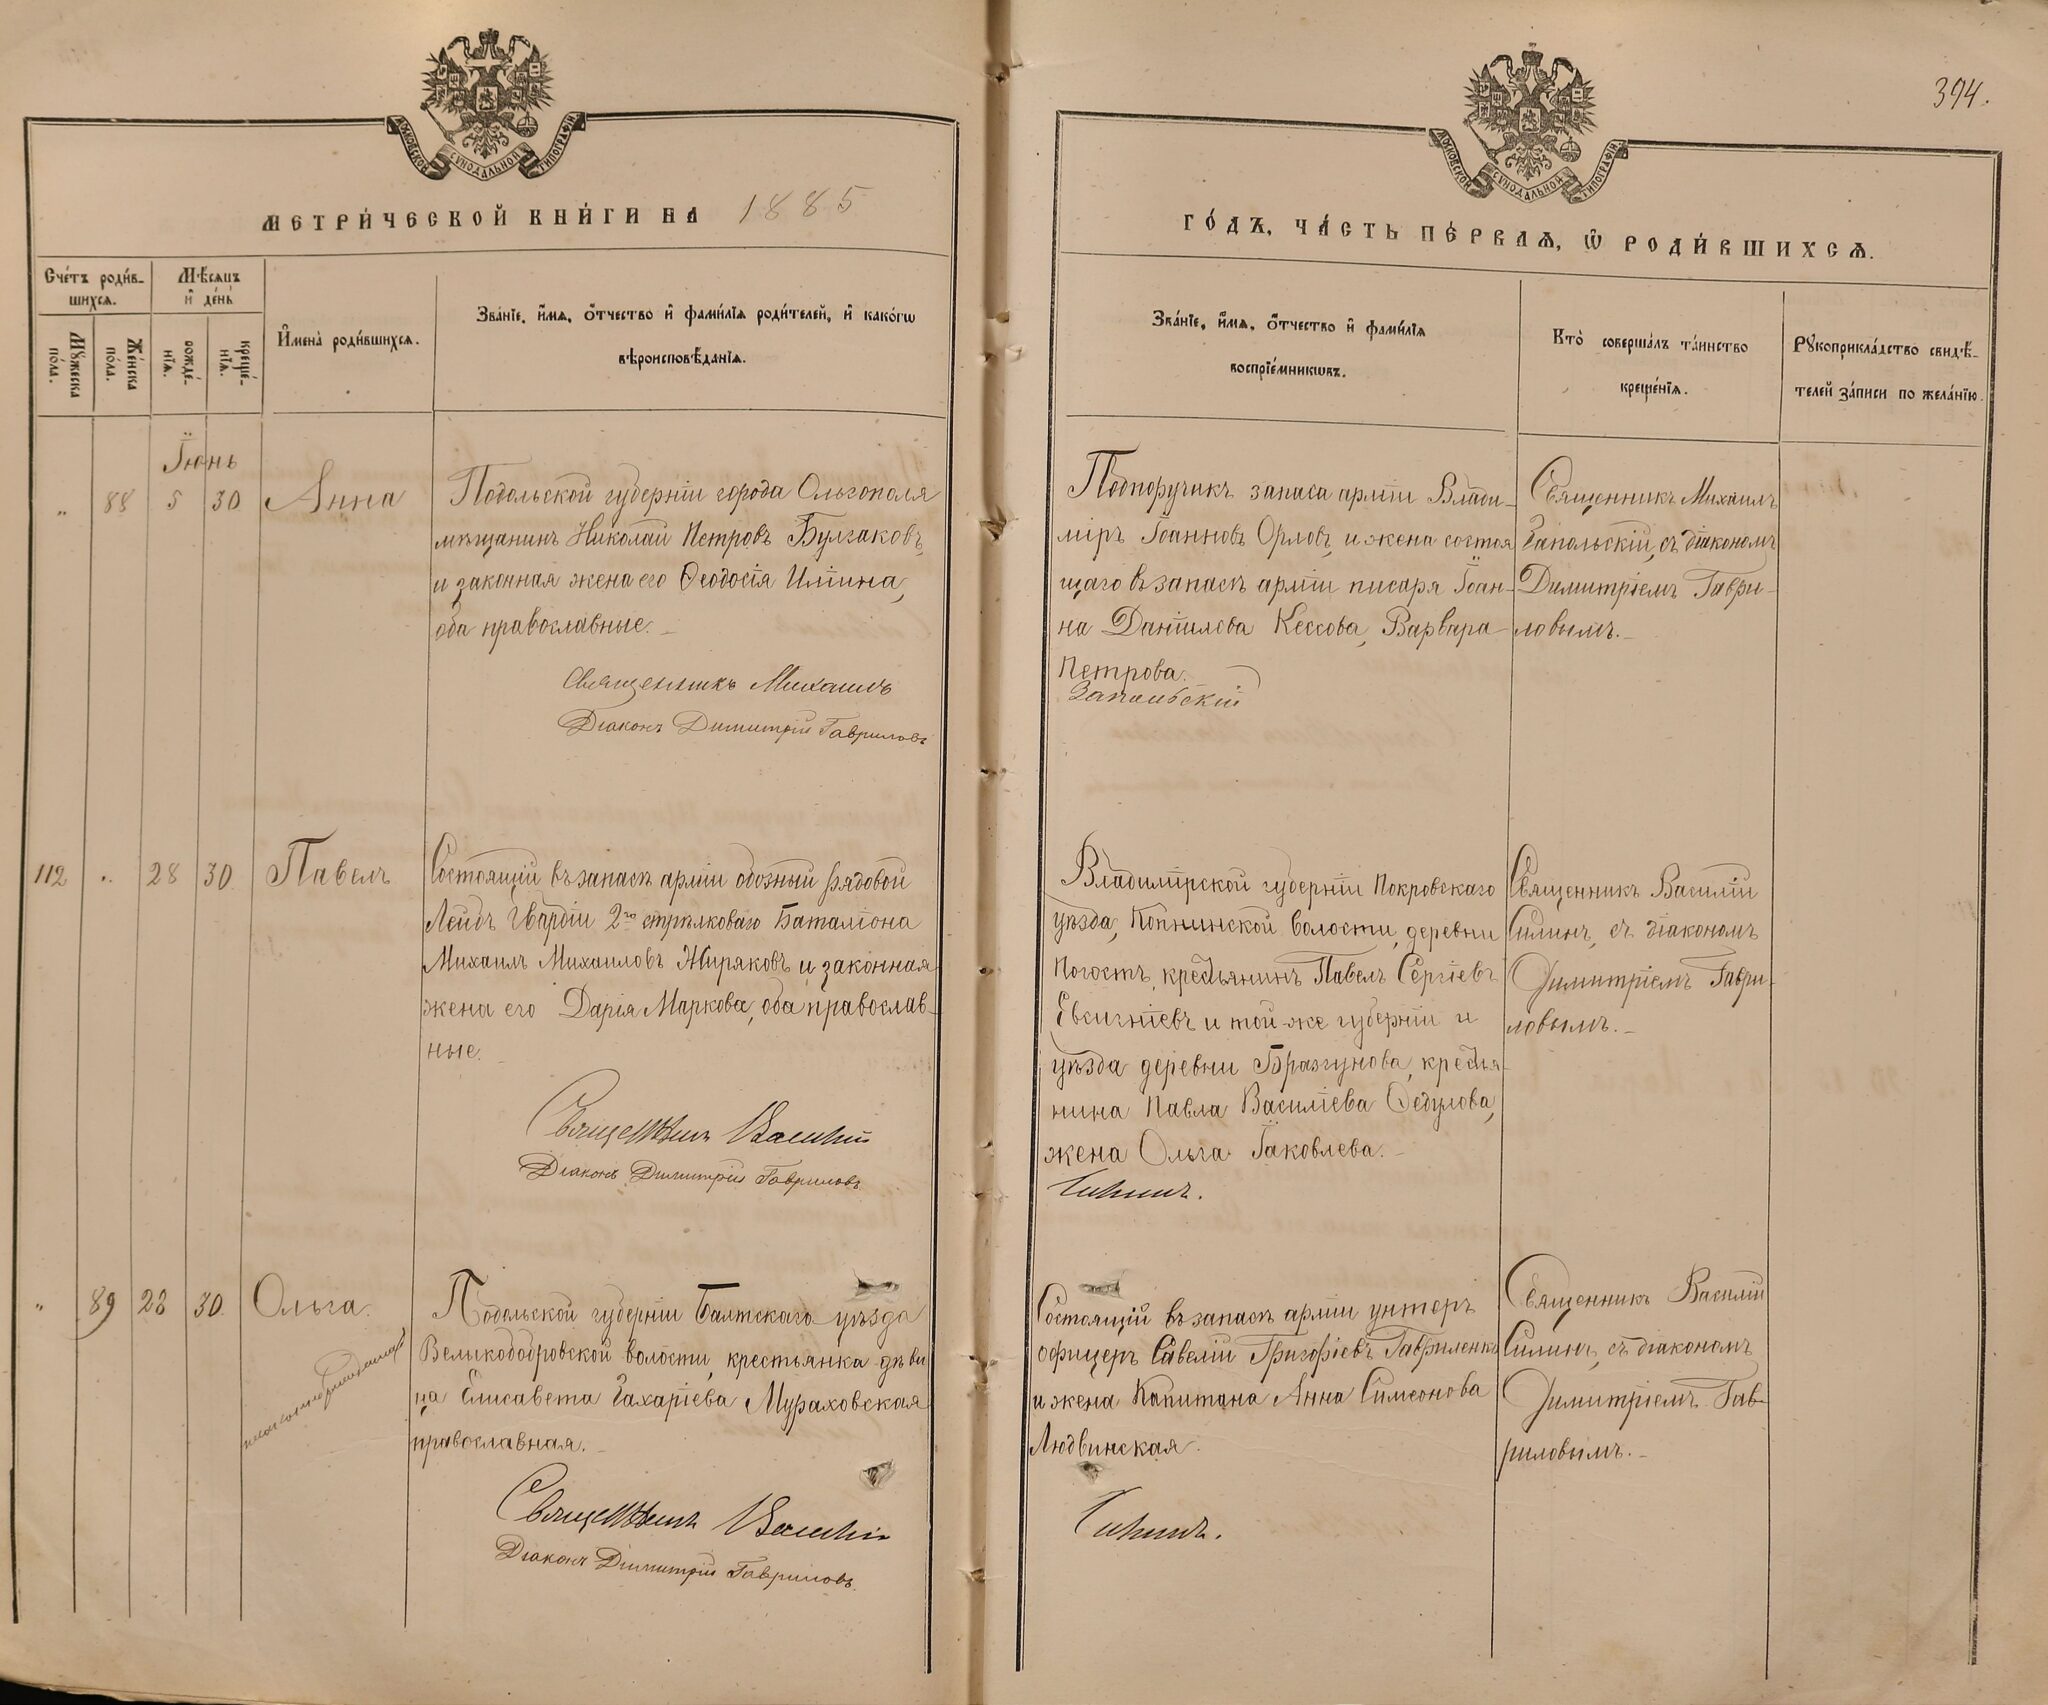 394.
МОСКОВСКОЙ СѴНОДАЛЬНОЙ ТИПОГРАФІИ
МОСКОВСКОЙ СѴНОДАЛЬНОЙ ТИПОГРАФІИ
МЕТРИ́ЧЕСКОЙ КНИ́ГИ НА 1885
ГО́ДЪ, ЧА́СТЬ ПЕ́РВАѦ, Ѡ҆ РОДИ́ВШИХСѦ.
Сче́тъ роди́в-
шихсѧ.
Мѣ́сѧцъ
и҆ де́нь
Мꙋ́жеска
по́ла.
Же́нска
по́ла.
рожде́-
нїѧ.
креще́-
нїѧ.
И҆мена̀ роди́вшихсѧ.
Зва́нїе, и҆́мѧ, ѻ҆́тчество и҆ фами́лїѧ роди́телей, и҆ како́гѡ
вѣроисповѣ́данїѧ.
Зва́нїе, и҆́мѧ, ѻ҆́тчество и҆ фами́лїѧ
воспрїе́мникѡвъ.
Кто̀ соверша́лъ та́инство
креще́нїѧ.
Рꙋкоприкла́дство свидѣ́-
телей за́писи по жела́нїю.
Іюнь
„ 88 5 30 Анна
Подольской губерніи города Ольгополя
мѣщанинъ Николай Петровъ Булгаковъ,
и законная жена его Ѳеодосія Иліина,
оба православные.
Священникъ Михаилъ
Діаконъ Димитрій Гавриловъ
Подпоручикъ запаса арміи Влади-
міръ Іоанновъ Орловъ, и жена состоя
щаго въ запасѣ арміи писаря Іоан-
на Даніилова Кессова, Варвара
Петрова.
Запольскій
Священникъ Михаилъ
Запольскій, съ діакономъ
Димитріемъ Гаври-
ловымъ.
112 „ 28 30 Павелъ
Состоящій въ запасѣ арміи обозный рядовой
Лейбъ Гвардіи 2го стрѣлковаго Баталіона
Михаилъ Михаиловъ Жиряковъ, и законная
жена его Дарія Маркова, оба православ-
ные.
Священникъ Василій
Діаконъ Димитрій Гавриловъ.
Владимірской губерніи Покровскаго
уѣзда, Копнинской волости, деревни
Погостъ, крестьянинъ Павелъ Сергіевъ
Евсигніевъ и той-же губерніи и
уѣзда деревни Брагунова, крестья-
нина Павла Василіева Ѳедулова,
жена Ольга Іаковлева.
Силинъ.
Священникъ Василій
Силинъ, съ діакономъ
Димитріемъ Гаври-
ловымъ.
„ 89 28 30 Ольга.
Подольской губерніи Балтскаго уѣзда
Великобобровской волости, крестьянка дѣви
ца Елисавета Захаріева Мураховская
православная.
Священникъ Василій
Діаконъ Димитрій Гавриловъ.
Состоящій въ запасѣ арміи унтеръ
офицеръ Савелій Григоріевъ Гавриленко
и жена Капитана Анна Симеонова
Людвинская.
Силинъ.
Священникъ Василій
Силинъ, съ діакономъ
Димитріемъ Гав-
риловымъ.